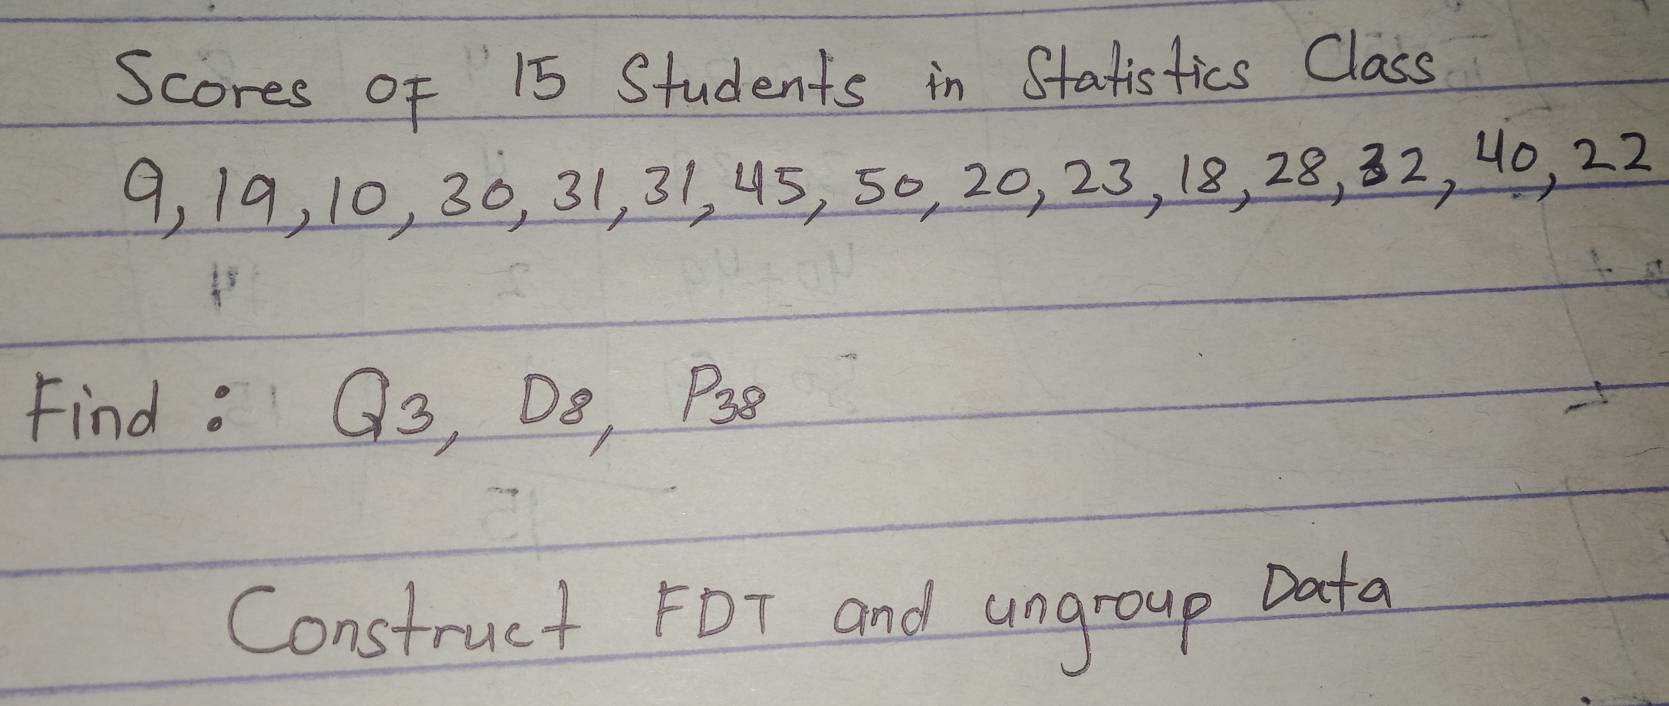 Scores of 15 Students in Statistics Class
9, 19, 10, 30, 31, 31, 45, 50, 20, 23, 18, 28, 32, 40, 22
Find : Q3, D8, P38
Construct FDT and ungroup Data